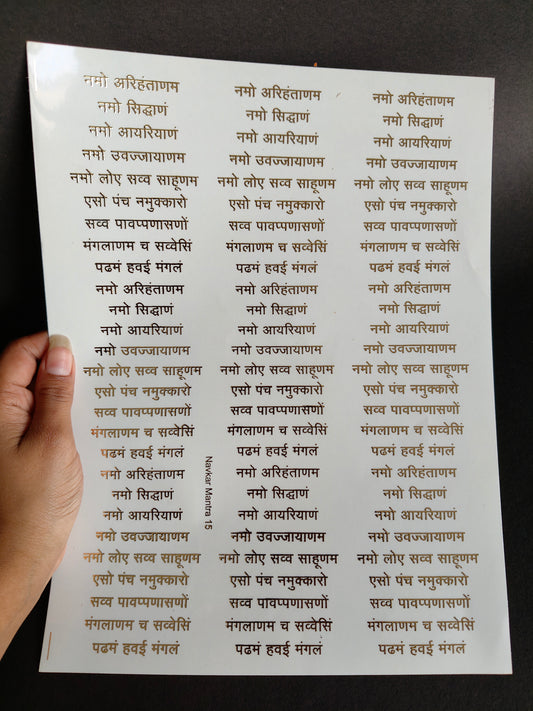 नमो अरिहंताणम
नमो सिद्धाणं
नमो आयरियाणं
नमो उवज्जायाणम
नमो लोए सव्व साहूणम
एसो पंच नमुक्कारो
सव्व पावप्पणासणों
मंगलाणम च सव्वेसिं
पढमं हवई मंगलं
नमो अरिहंताणम
नमो सिद्धाणं
नमो आयरियाणं
नमो उवज्जायाणम
नमो लोए सव्व साहूणम
एसो पंच नमुक्कारो
सव्व पावप्पणासणों
मंगलाणम च सव्वेसिं
पढमं हवई मंगलं
नमो अरिहंताणम
नमो सिद्धाणं
नमो आयरियाणं
नमो उवज्जायाणम
नमो लोए सव्व साहूणम
एसो पंच नमुक्कारो
सव्व पावप्पणासणों
मंगलाणम च सव्वेसिं
पढमं हवई मंगलं
Navkar Mantra 15
नमो अरिहंताणम
नमो सिद्धाणं
नमो आयरियाणं
नमो उवज्जायाणम
नमो लोए सव्व साहूणम
एसो पंच नमुक्कारो
सव्व पावप्पणासणों
मंगलाणम च सव्वेसिं
पढमं हवई मंगलं
नमो अरिहंताणम
नमो सिद्धाणं
नमो आयरियाणं
नमो उवज्जायाणम
नमो लोए सव्व साहूणम
एसो पंच नमुक्कारो
सव्व पावप्पणासणों
मंगलाणम च सव्वेसिं
पढमं हवई मंगलं
नमो अरिहंताणम
नमो सिद्धाणं
नमो आयरियाणं
नमो उवज्जायाणम
नमो लोए सव्व साहूणम
एसो पंच नमुक्कारो
सव्व पावप्पणासणों
मंगलाणम च सव्वेसिं
पढमं हवई मंगलं
नमो अरिहंताणम
नमो सिद्धाणं
नमो आयरियाणं
नमो उवज्जायाणम
नमो लोए सव्व साहूणम
एसो पंच नमुक्कारो
सव्व पावप्पणासणों
मंगलाणम च सव्वेसिं
पढमं हवई मंगलं
नमो अरिहंताणम
नमो सिद्धाणं
नमो आयरियाणं
नमो उवज्जायाणम
नमो लोए सव्व साहूणम
एसो पंच नमुक्कारो
सव्व पावप्पणासणों
मंगलाणम च सव्वेसिं
पढमं हवई मंगलं
नमो अरिहंताणम
नमो सिद्धाणं
नमो आयरियाणं
नमो उवज्जायाणम
नमो लोए सव्व साहूणम
एसो पंच नमुक्कारो
सव्व पावप्पणासणों
मंगलाणम च सव्वेसिं
पढमं हवई मंगलं